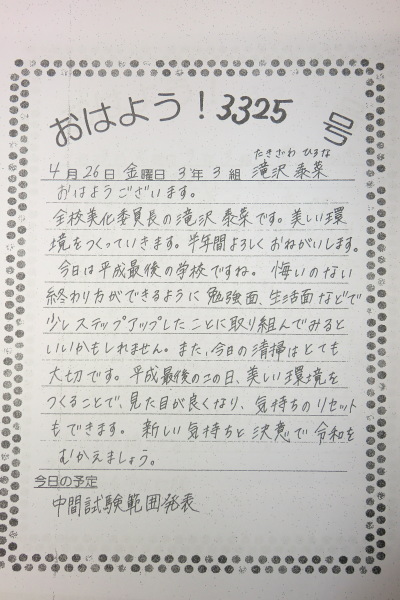 おはよう！3325号
たきざわ ひるな
4月26日金曜日 3年3組 滝沢 泰菜
おはようございます。
全校美化委員長の滝沢 泰菜です。美しい環
境をつくっていきます。半年間よろしくおねがいします。
今日は平成最後の学校ですね。悔いのない
終わり方ができるように勉強面、生活面などで
少しステップアップしたことに取り組んでみると
いいかもしれません。また、今日の清掃はとても
大切です。平成最後のこの日、美しい環境を
つくることで、見た目が良くなり、気持ちのリセット
もできます。新しい気持ちと決意で令和を
むかえましょう。
今日の予定
中間試験範囲発表